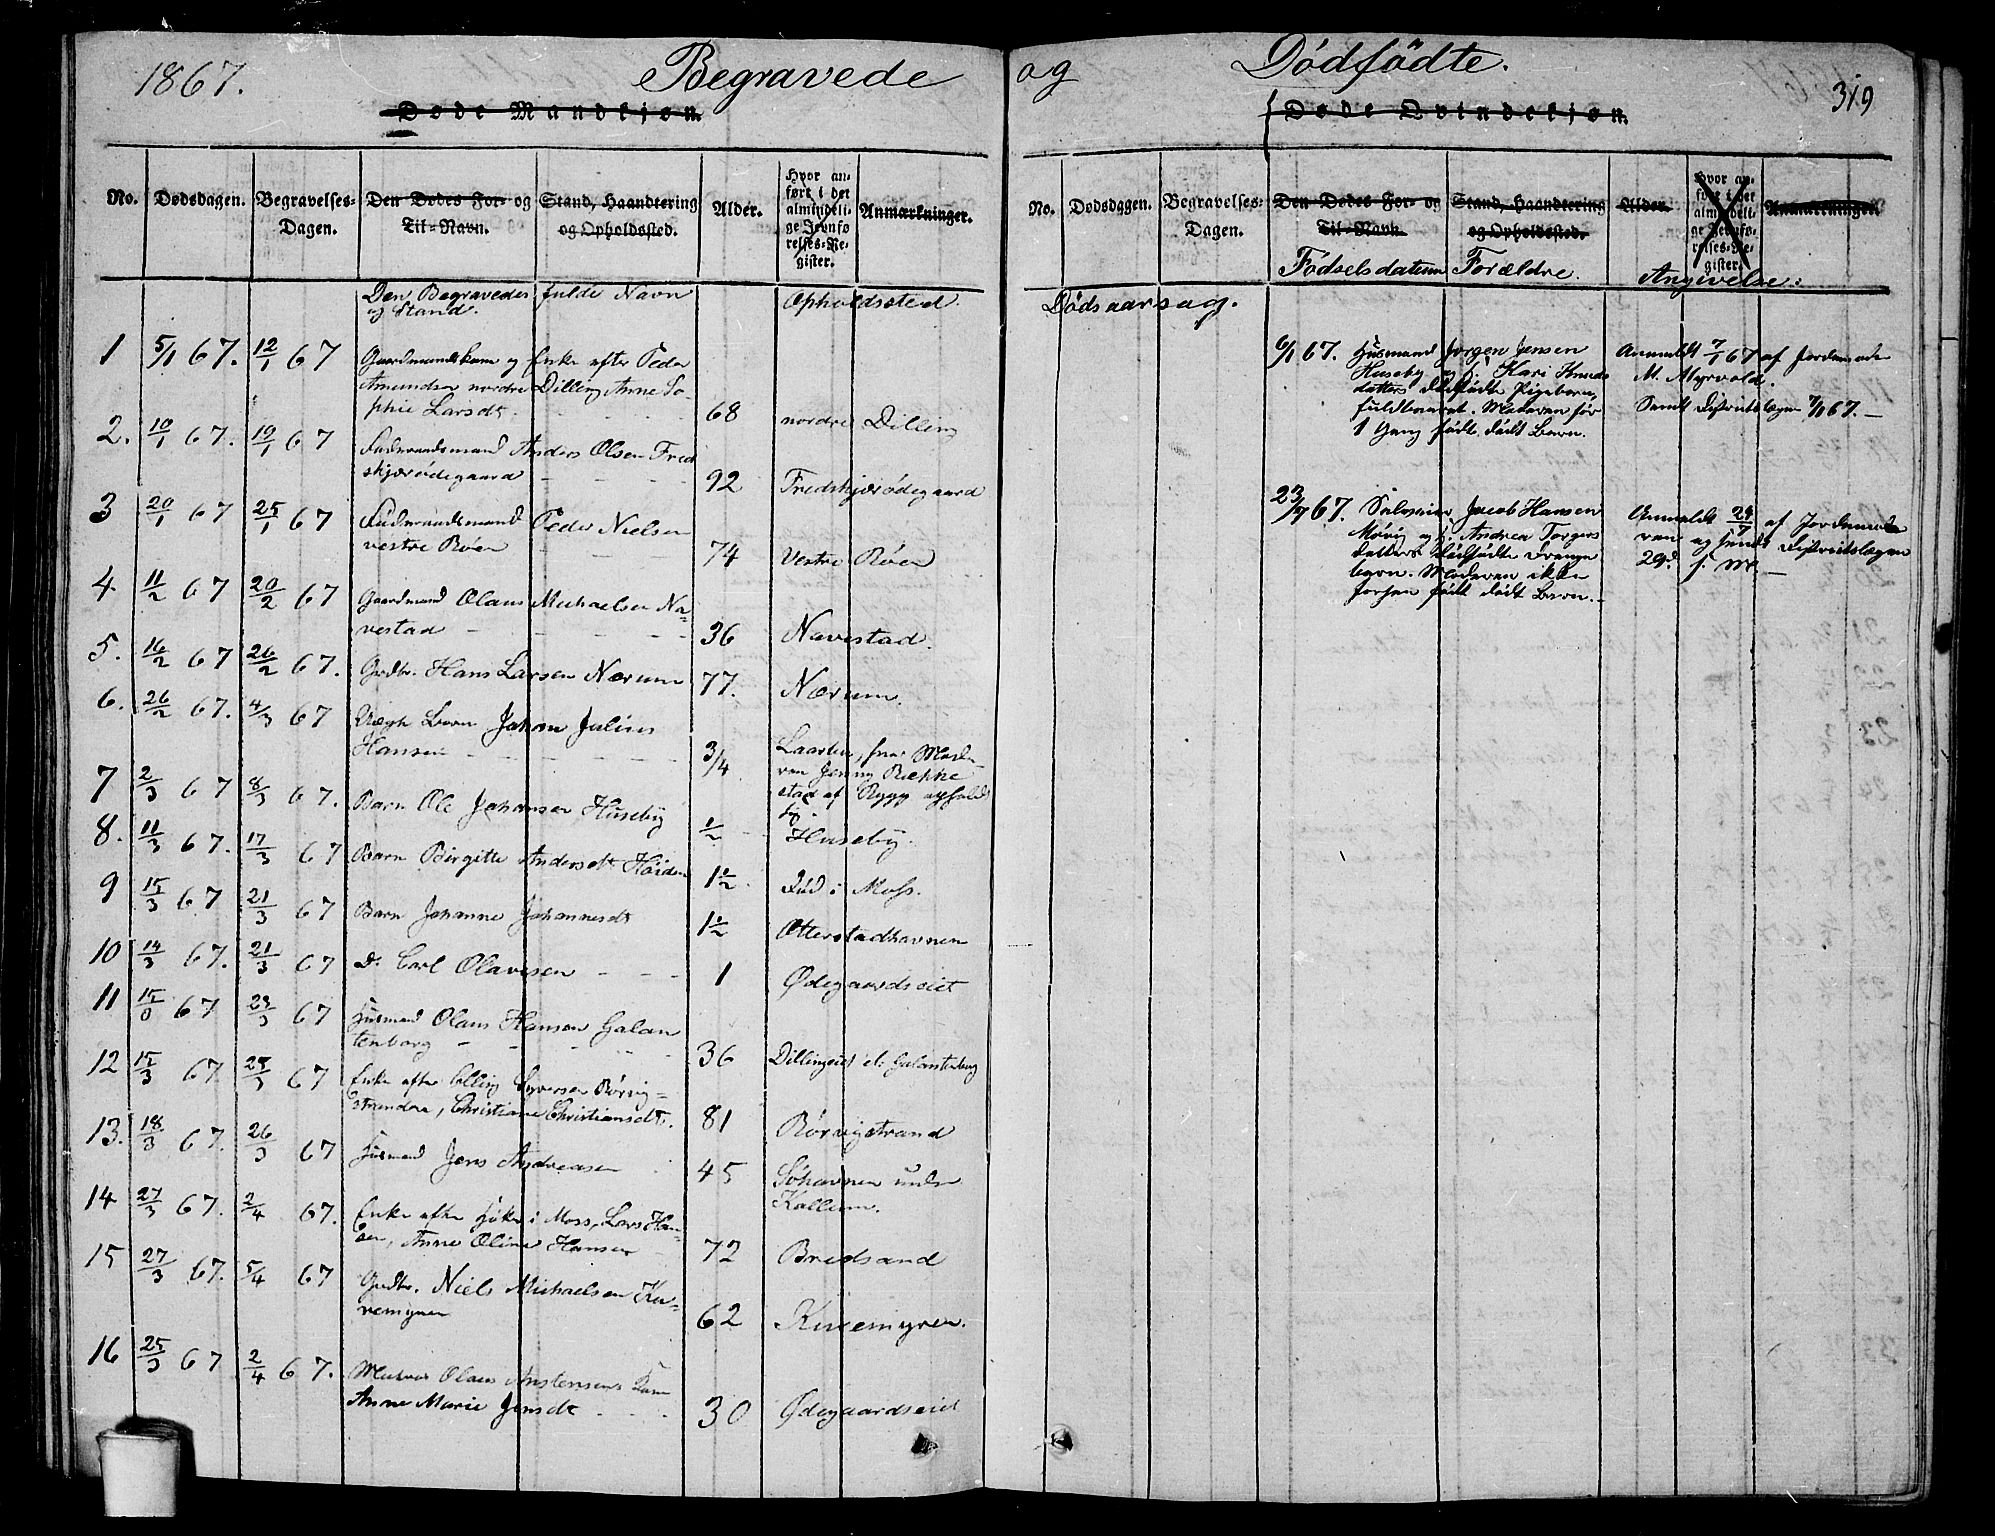 1867.
Begravede
og
Dödfödte.
319
Døde Mandkjøn.
Døde Qvindekjøn.
No.
Dødsdagen.
Begravelses-
Dagen.
Den Dødes For- og
Til-Navn.
Stand, Haandtering
og Opholdssted.
Alder.
Hvor an-
ført i det
almindeli-
ge Jevnfø-
relses-Re-
gister.
Anmærkninger.
Den Begravedes fulde Navn
og Stand.
Opholdssted.
1 5/1 67. 12/1 67 Gaardmandskone og Enke efter Peder
Amundsen nordre Dilling Anne So-
phie Larsdt. 68 nordre Dilling
2. 10/1 67. 19/1 67 Anders Olsen Fred
skjærødegaard 92 Fredskjærødegaard
3 20/1 67 25/1 67 Peder Nielsen
vestre Röer 74 Vestre Röer
4. 11/2 67 20/2 67 Gaardmand Olaus Michaelsen Na-
vestad 36 Navestad.
5. 16/2 67 26/2 67. Grdbr. Hans Larsen Nærum 77. Nærum.
6. 26/2 67. 4/3 67 Uægte Barn Johan Julius
Hansen 3/4 Laarten, fra Mode-
ren Jenny Række
stad af Rygg opholdt
sig.
7 2/3 67 8/3 67. Barn Ole Johansen Huseby 1/2 Huseby.
8. 11/3 67. 17/3 67 Barn Birgitte Andersdt Höiden 1 1/2 i Moss.
9 15/3 67 21/3 67 Barn Johanne Johannesdt 1 1/2 Ætterstadhavnen
10 14/3 67. 21/3 67 Do Carl Olavesen 1 Ødegaardseiet
11 15/3 67 23/3 67 Husmand Olaus Hansen Galan
tenborg 36 Dillingeiet el. Galantenborg
12 15/3 67. 25/3 67 Enke efter Elling Syversen Rörvig-
stranden, Christiane Christiansdt. 81 Rörvigstrand
13. 18/3 67. 26/3 67 Husmand Jens Andreasen 45 Söhavnen under
Kallum.
14 27/3 67. 2/4 67. Enke efter Höker i Moss, Lars Han-
sen, Anne Oline Hansen 72 Bredsand
15 27/3 67. 5/4 67 Grdbr. Niels Michaelsen Ku-
remyren 62 Kuremyren.
16 25/3 67 2/4 67. Murer Olaus Anstensens Kone
Anne Marie Jensdt 30 Ødegaardseiet
No.
Dødsdagen.
Begravelses-
Dagen.
Den Dødes For- og
Til-Navn.
Stand, Haandtering
og Opholdssted.
Alder.
Hvor an-
ført i det
almindeli-
ge Jevnfø-
relses-Re-
gister.
Anmærkninger.
Födselsdatum
Forældre.
Angivelse:
Dödsaarsag.
6/1 67. Husmand Jörgen Jensen
Huseby og h. Kari Knuds
datters dödfödte Pigebarn,
fuldbaaret. Moderen för
1 Gang födt dödt Barn.
Anmeldt 7/1 67 af Jordemoder
M. Myrvold.
Sendt Distriktslægen 7/1 67.
23/7 67. Jacob Hansen
og h. Andrea Torgers
datters dödfödte Drenge
barn. Moderen ikke
forhen födt dödt Barn.
Anmeldt 24/7 af Jordemode
ren og sendt Distriktslægen
29de s. M.